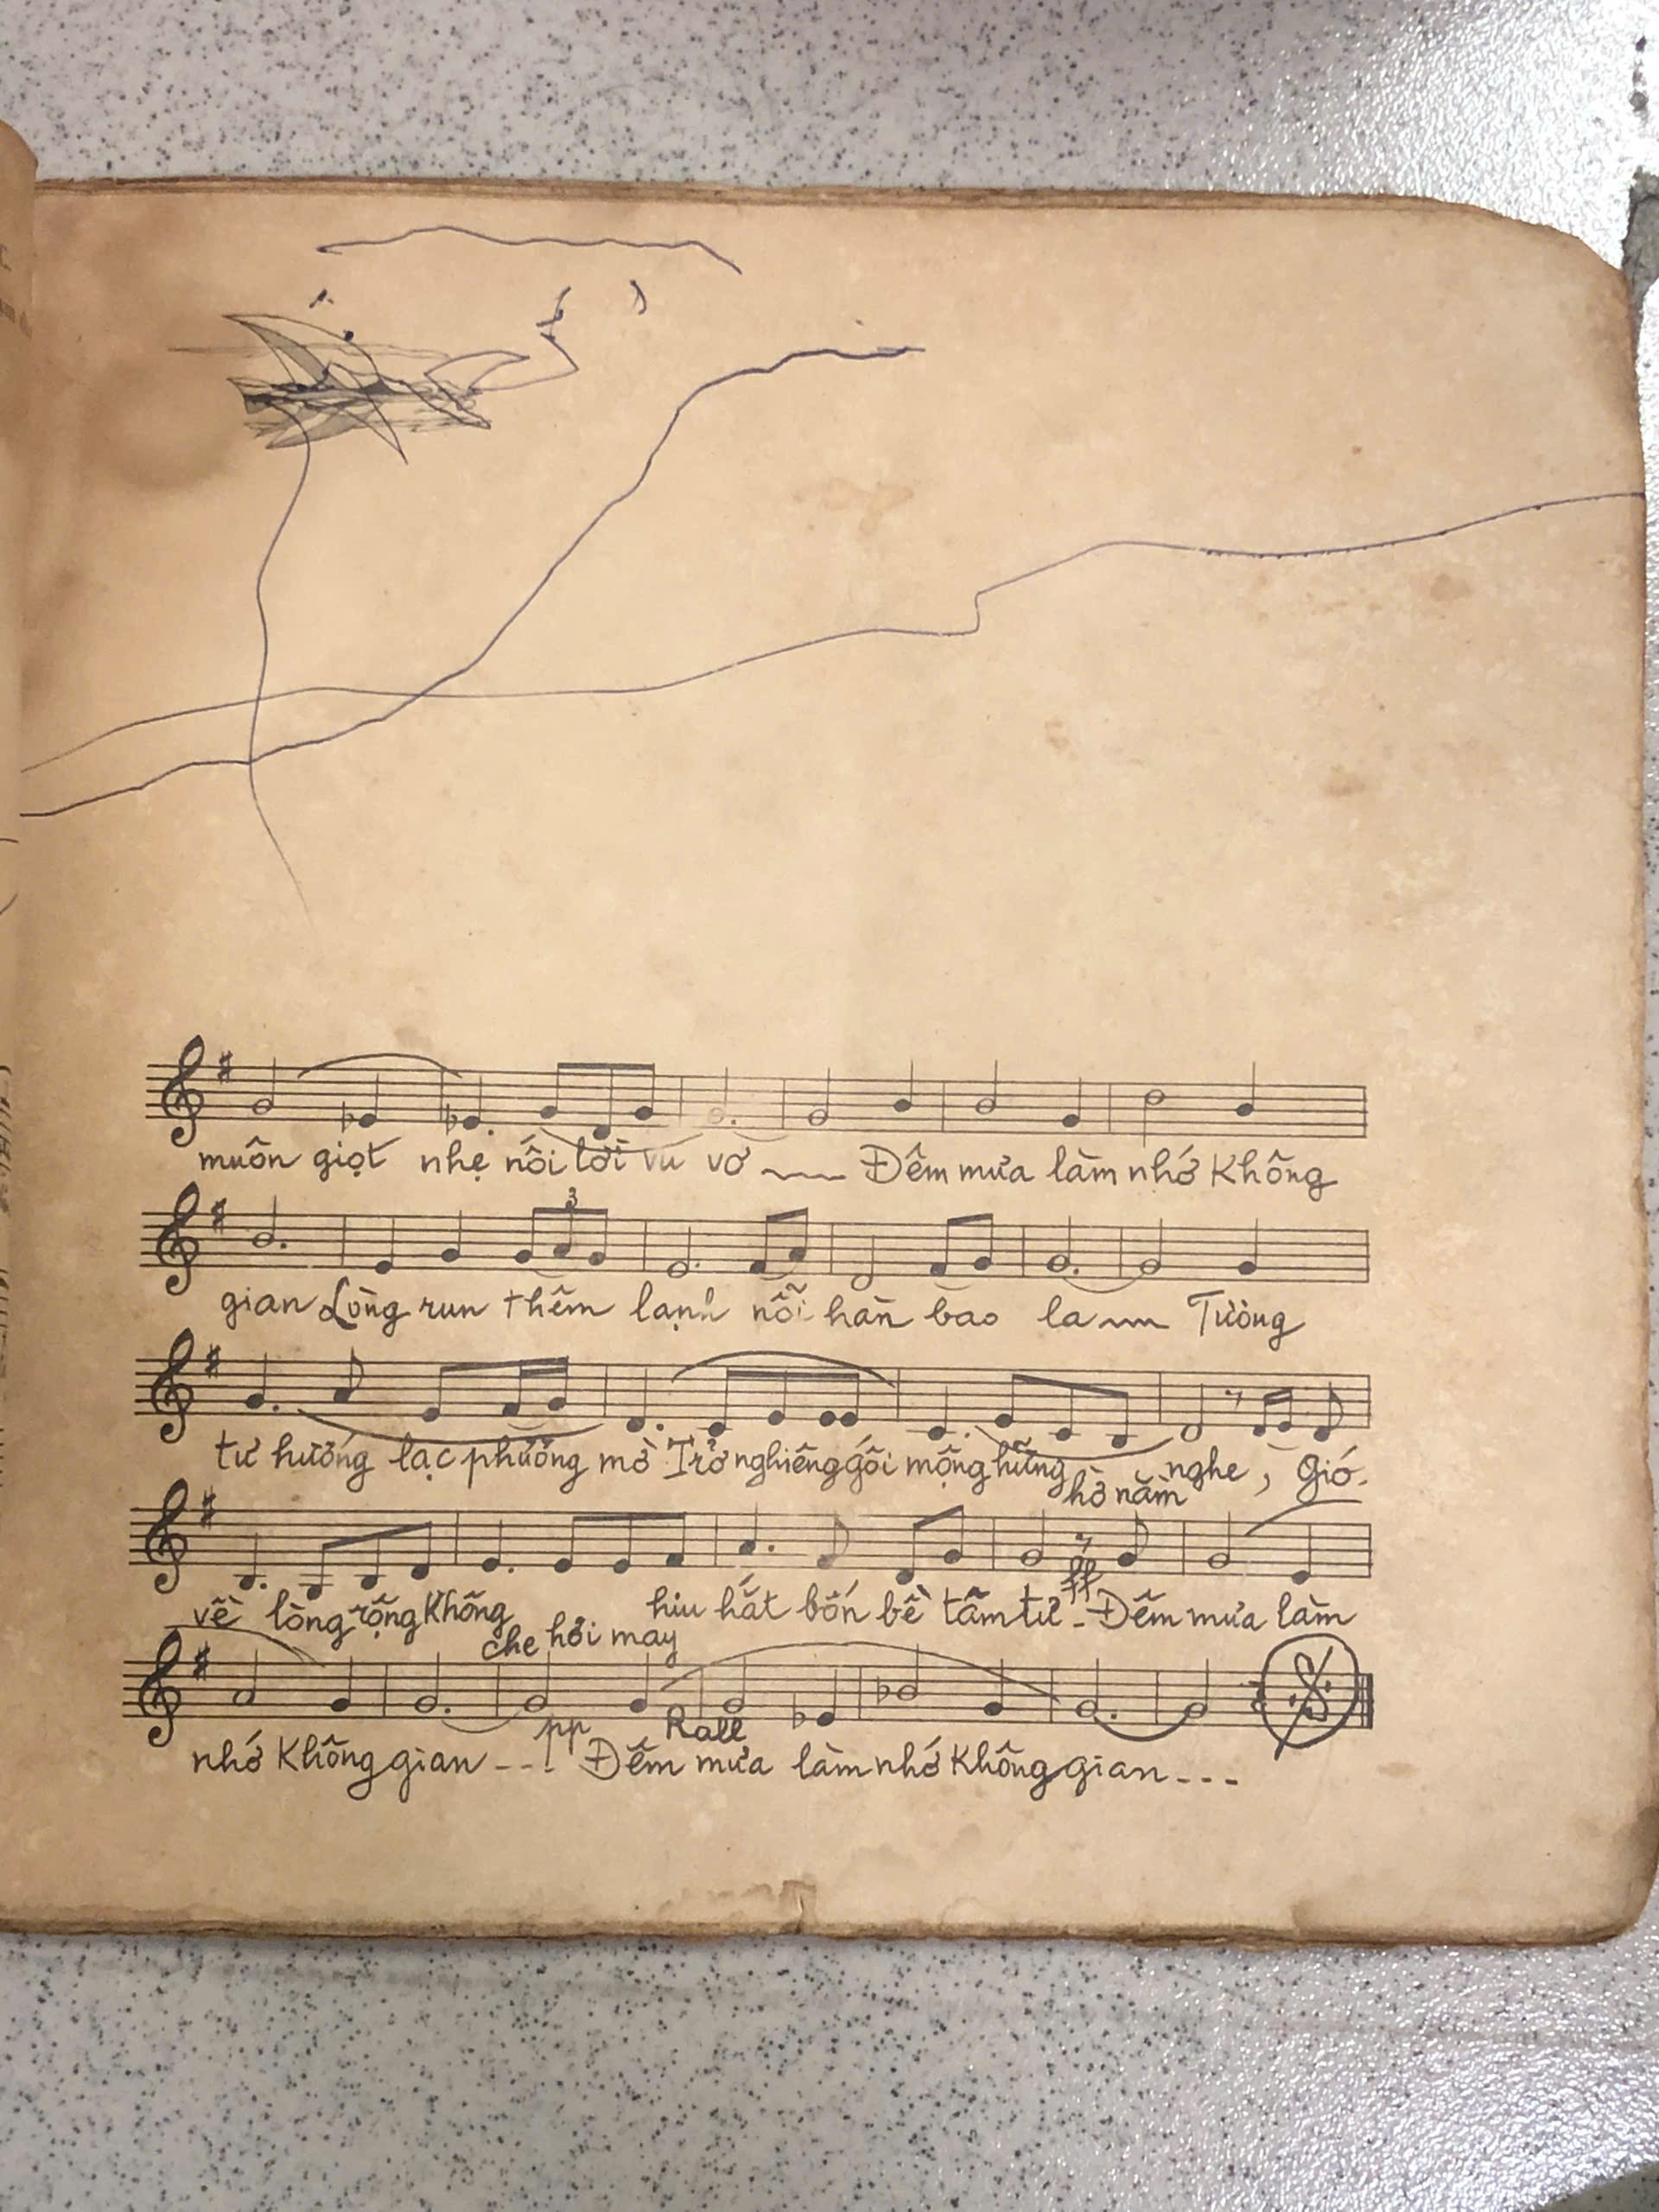 muôn giọt nhẹ nôí lời vu vơ Đêm mưa làm nhớ Không
3
gian Lòng run thêm lạnh nỗi hàn bao la Tường
tư hướng lạc phương mờ Trở nghiêng gối mộng hững nghe, Gió.
hờ nằm
về lòng rộng Không hiu hắt bốn bề tâm tư - Đêm mưa làm
ff
che hơi may
nhớ Không gian --- Đêm mưa làm nhớ Không gian ---
pp Rall